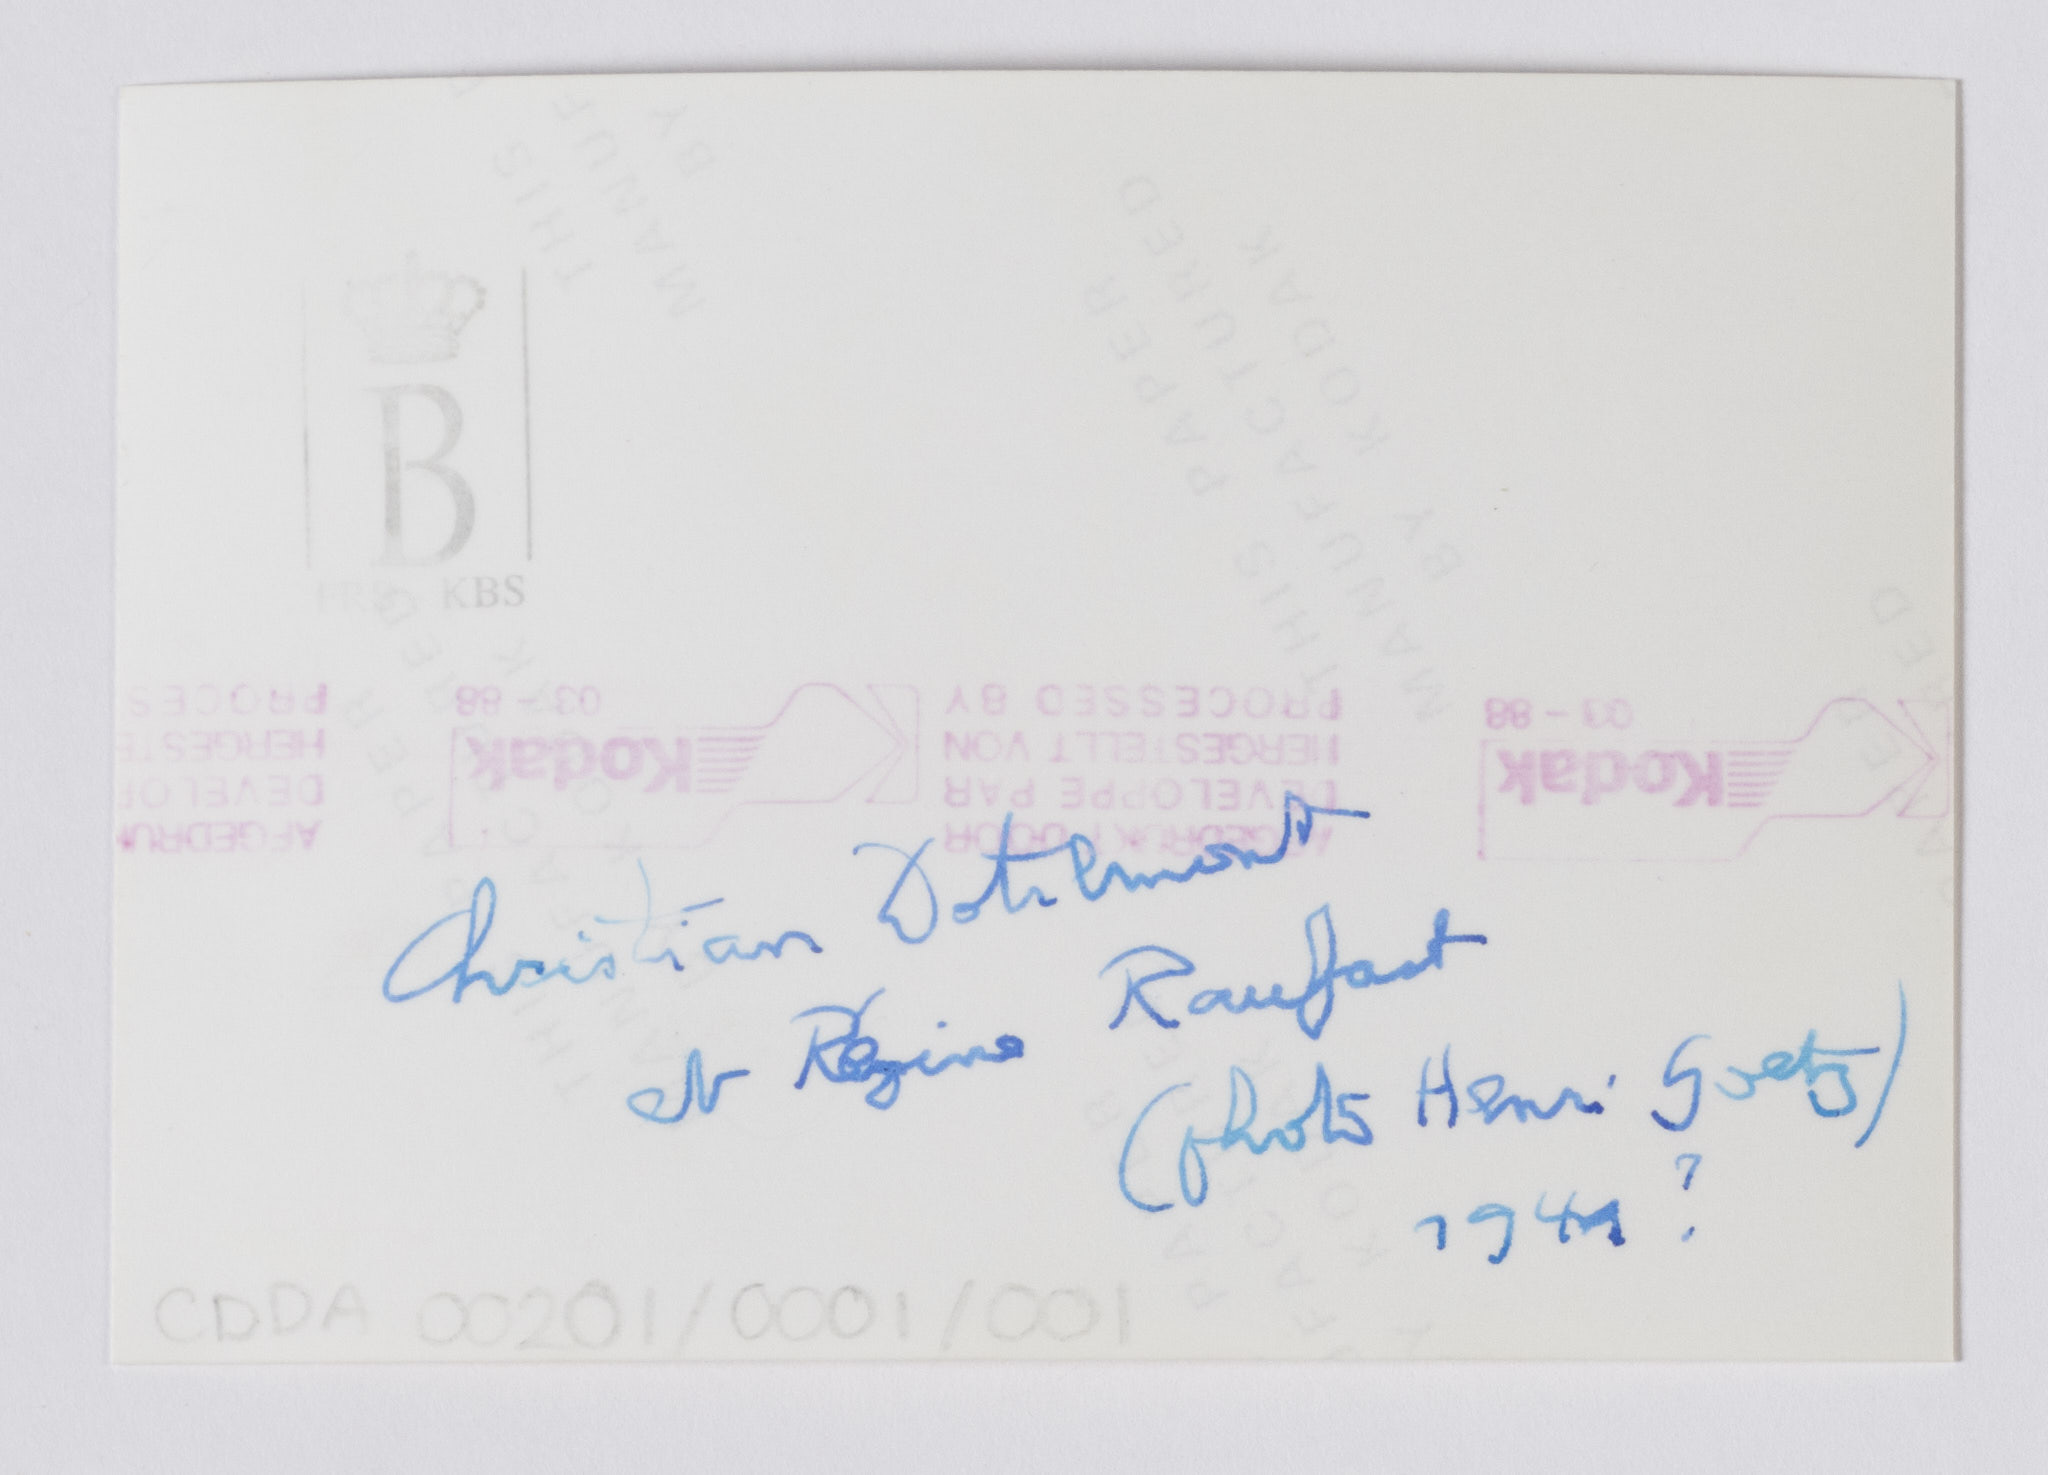 THIS
MANUF
BY
THIS PAPER
MANUFACTURED
BY KODAK
B
FRB KBS
PROCES
HERGESTE
DEVELOP
AFGEDRUK
03 - 88
Kodak
PROCESSED BY
HERGESTELLT VON
DEVELOPPE PAR
AFGEDRUKT DOOR
03 - 88
Kodak
Christian Dotremont
et Régine Raufast
(photo Henri Goetz)
1941 ?
CDDA 00201/0001/001